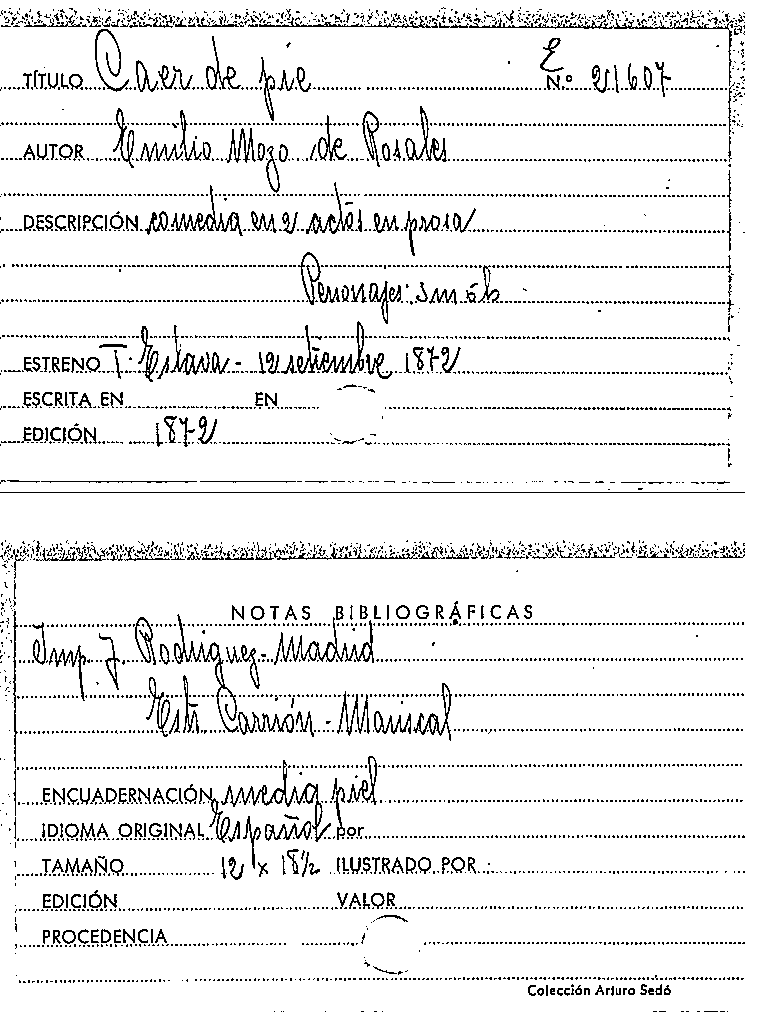 TÍTULO Caer de pie E Nº 21607
AUTOR Emilio Mozo de Rosales
DESCRIPCIÓN comedia en 2 actos en prosa
Personajes: 5m 6h
ESTRENO T. Eslava - 12 setiembre 1872
ESCRITA EN EN
EDICIÓN 1872
NOTAS BIBLIOGRÁFICAS
Imp. J. Rodriguez - Madrid
Estr. Carrión - Mariscal
ENCUADERNACIÓN media piel
IDIOMA ORIGINAL Español por
TAMAÑO 12 x 18½ ILUSTRADO POR :
EDICIÓN VALOR
PROCEDENCIA
Colección Arturo Sedó